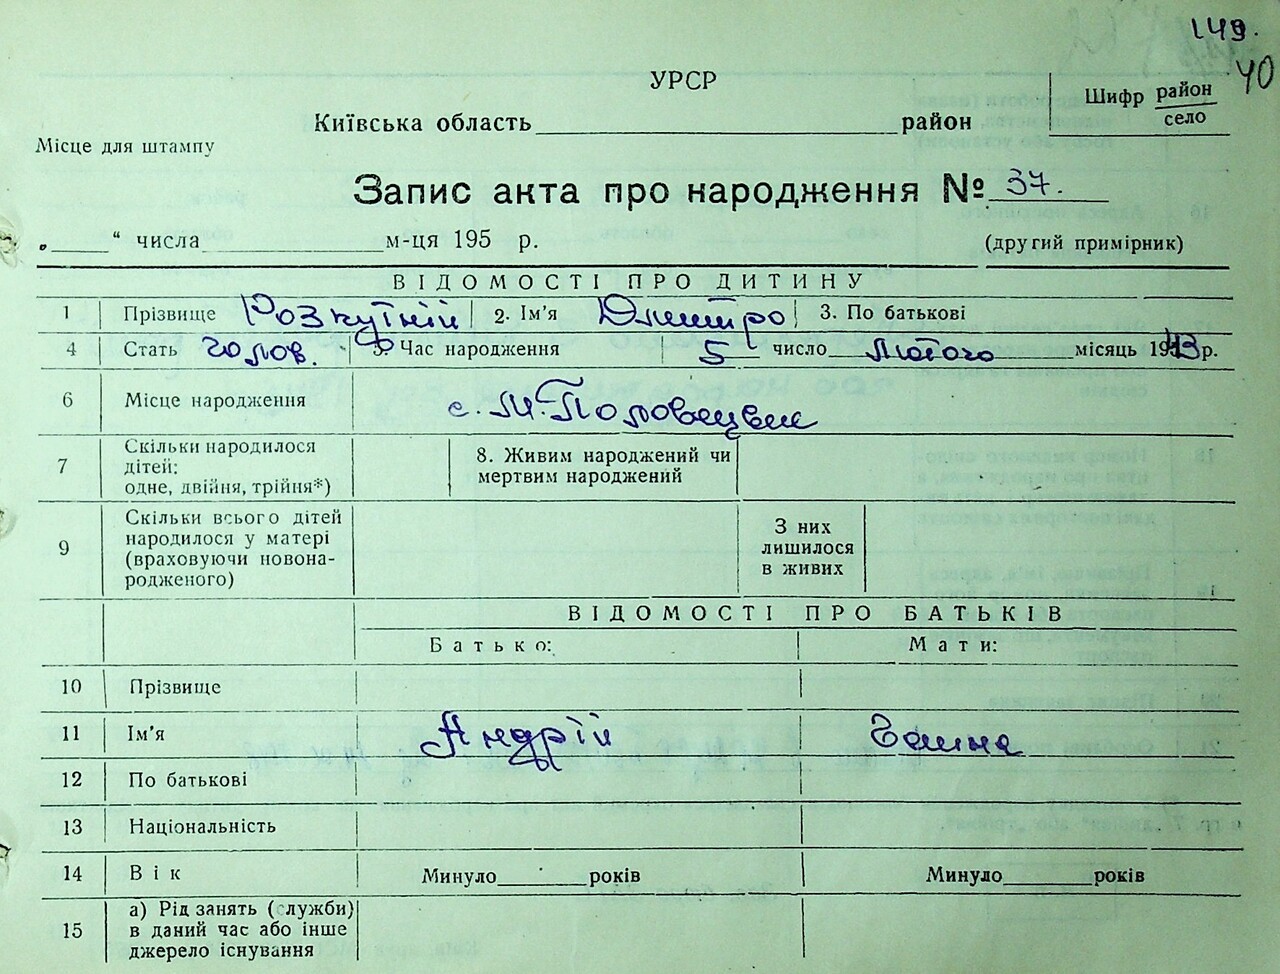 149.
40
УРСР
Київська область район
Шифр район
село
Місце для штампу
Запис акта про народження № 37.
„ “ числа м-ця 195 р. (другий примірник)
ВІДОМОСТІ ПРО ДИТИНУ
1 Прізвище Розкутній 2. Ім'я Дмитро 3. По батькові
4 Стать Чолов. 5. Час народження 5 число Лютого місяць 1943 р.
6 Місце народження с. М. Половецьке
7 Скільки народилося
дітей:
одне, двійня, трійня*)
8. Живим народжений чи
мертвим народжений
9 Скільки всього дітей
народилося у матері
(враховуючи новона-
родженого)
З них
лишилося
в живих
ВІДОМОСТІ ПРО БАТЬКІВ
Батько: Мати:
10 Прізвище
11 Ім'я Андрій Ганна
12 По батькові
13 Національність
14 Вік Минуло років Минуло років
15 а) Рід занять (служби)
в даний час або інше
джерело існування